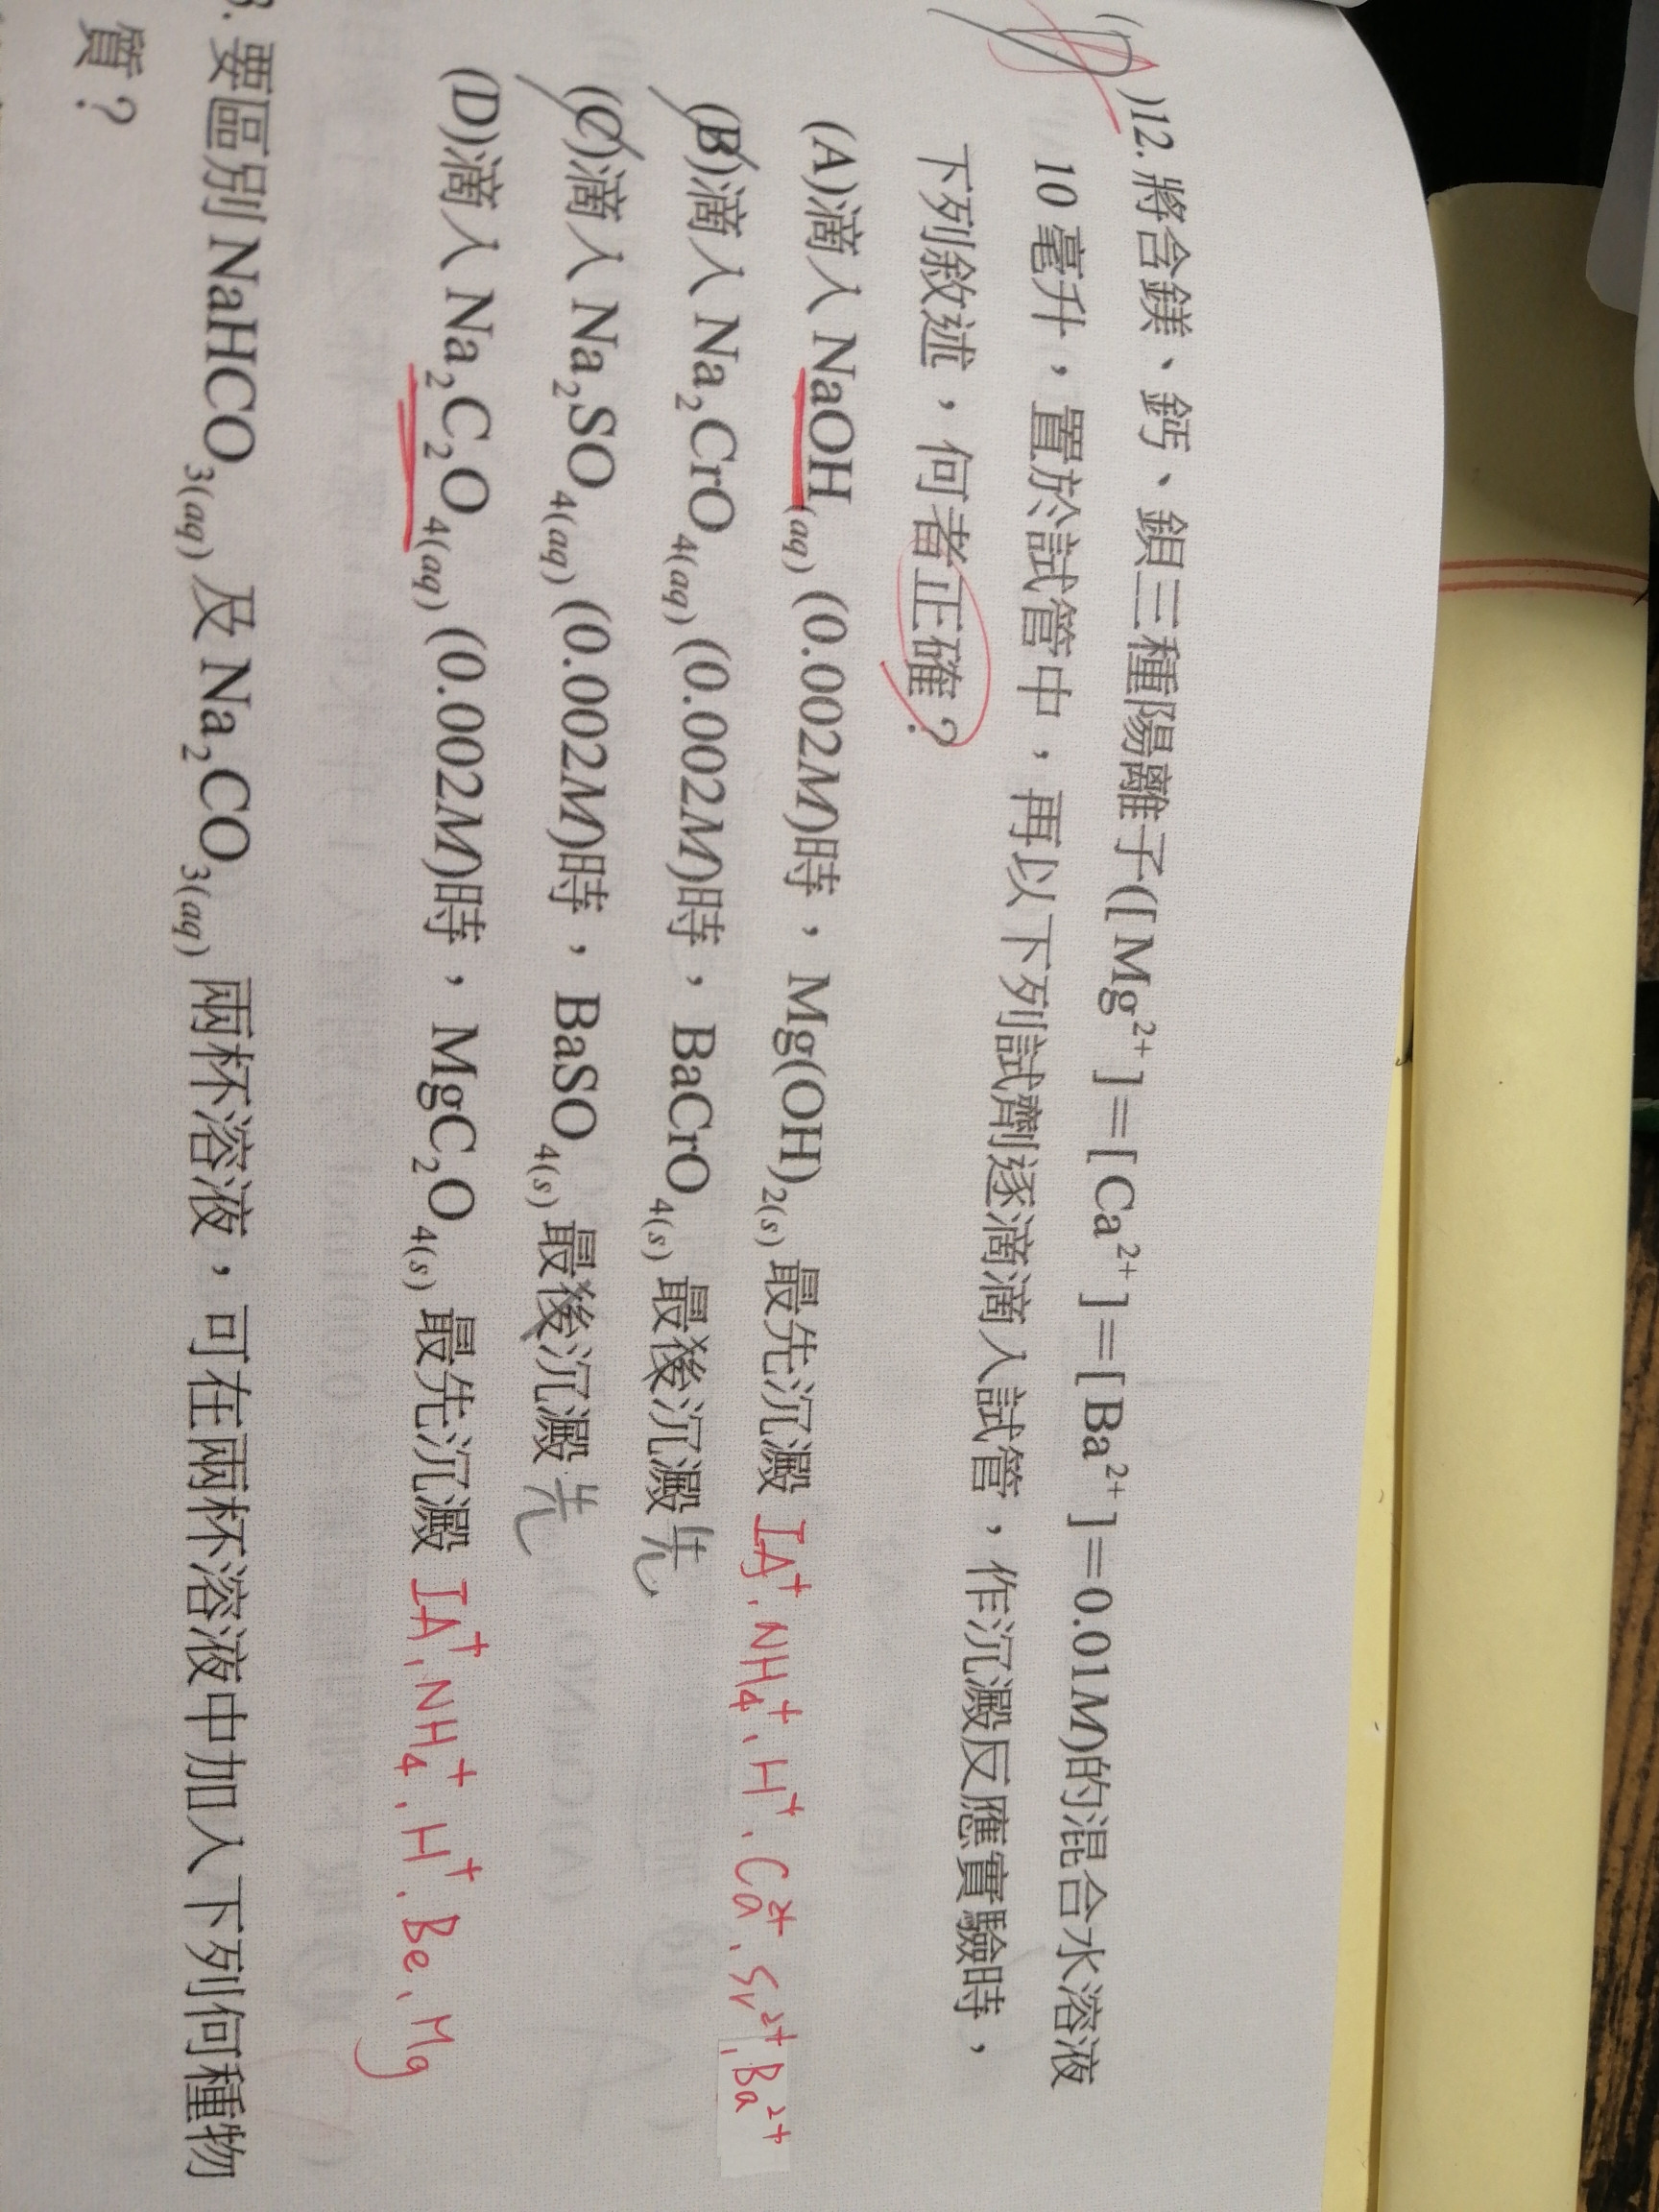 )12. 將含鎂、鈣、鋇三種陽離子([Mg²⁺]=[Ca²⁺]=[Ba²⁺]=0.01M)的混合水溶液
10 毫升，置於試管中，再以下列試劑逐滴滴入試管，作沉澱反應實驗時，
下列敘述，何者正確？
(A)滴入 NaOH(aq) (0.002M)時，Mg(OH)₂(s)最先沉澱 IA⁺、NH₄⁺、H⁺、Ca²⁺、Sr²⁺、Ba²⁺
(B)滴入 Na₂CrO₄(aq) (0.002M)時，BaCrO₄(s)最後沉澱 先
(C)滴入 Na₂SO₄(aq) (0.002M)時，BaSO₄(s)最後沉澱 先
(D)滴入 Na₂C₂O₄(aq) (0.002M)時，MgC₂O₄(s)最先沉澱 IA⁺、NH₄⁺、H⁺、Be、Mg
3. 要區別 NaHCO₃(aq)及 Na₂CO₃(aq)兩杯溶液，可在兩杯溶液中加入下列何種物
質？